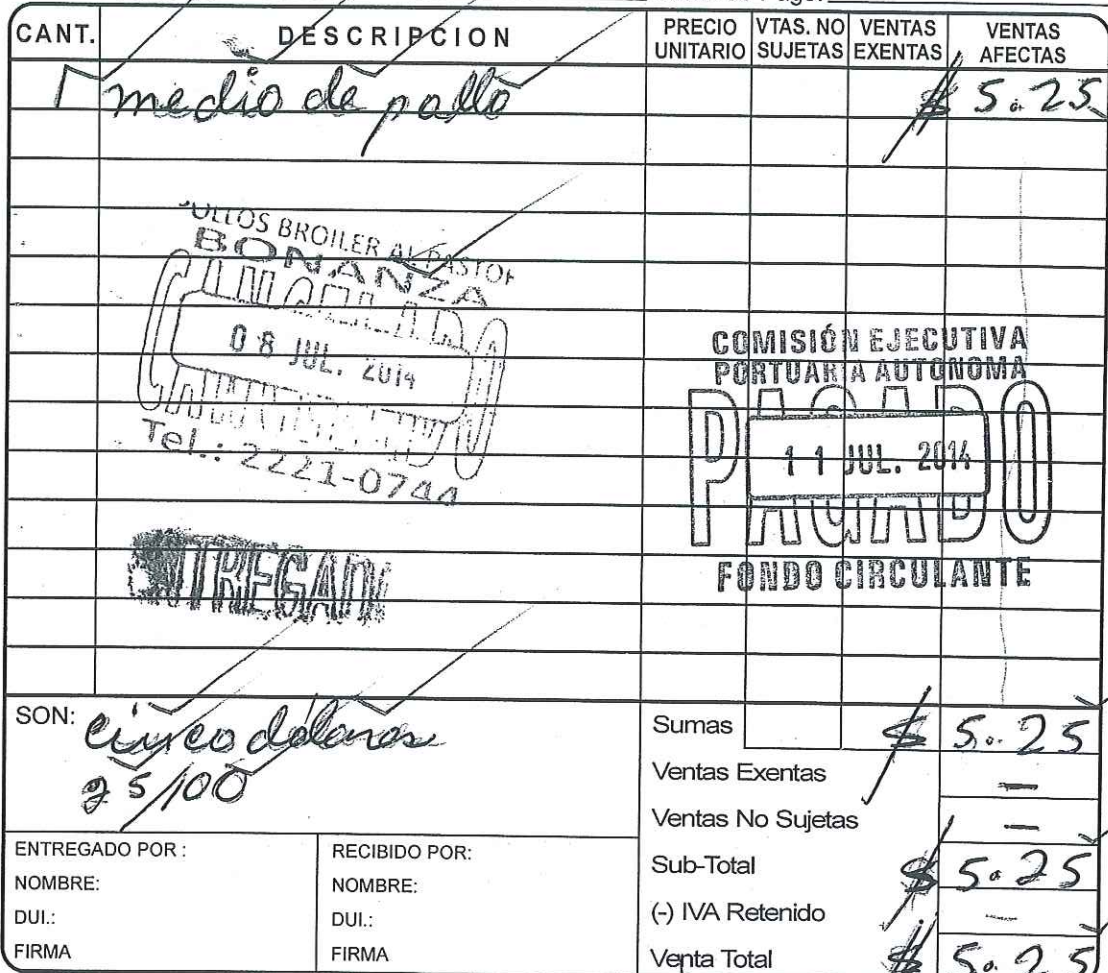 CANT. DESCRIPCION PRECIO UNITARIO VTAS. NO SUJETAS VENTAS EXENTAS VENTAS AFECTAS
1 medio de pollo $ 5.25
POLLOS BROILER AL PASTOR
BONANZA
CANCELADO
08 JUL. 2014
CANCELADO
Tel.: 2221-0744
COMISIÓN EJECUTIVA
PORTUARIA AUTONOMA
PAGADO
11 JUL. 2014
PAGADO
FONDO CIRCULANTE
ENTREGADO
SON: cinco dolares
25/100
Sumas $ 5.25
Ventas Exentas —
Ventas No Sujetas —
Sub-Total $ 5.25
(-) IVA Retenido —
Venta Total $ 5.25
ENTREGADO POR :
NOMBRE:
DUI.:
FIRMA
RECIBIDO POR:
NOMBRE:
DUI.:
FIRMA